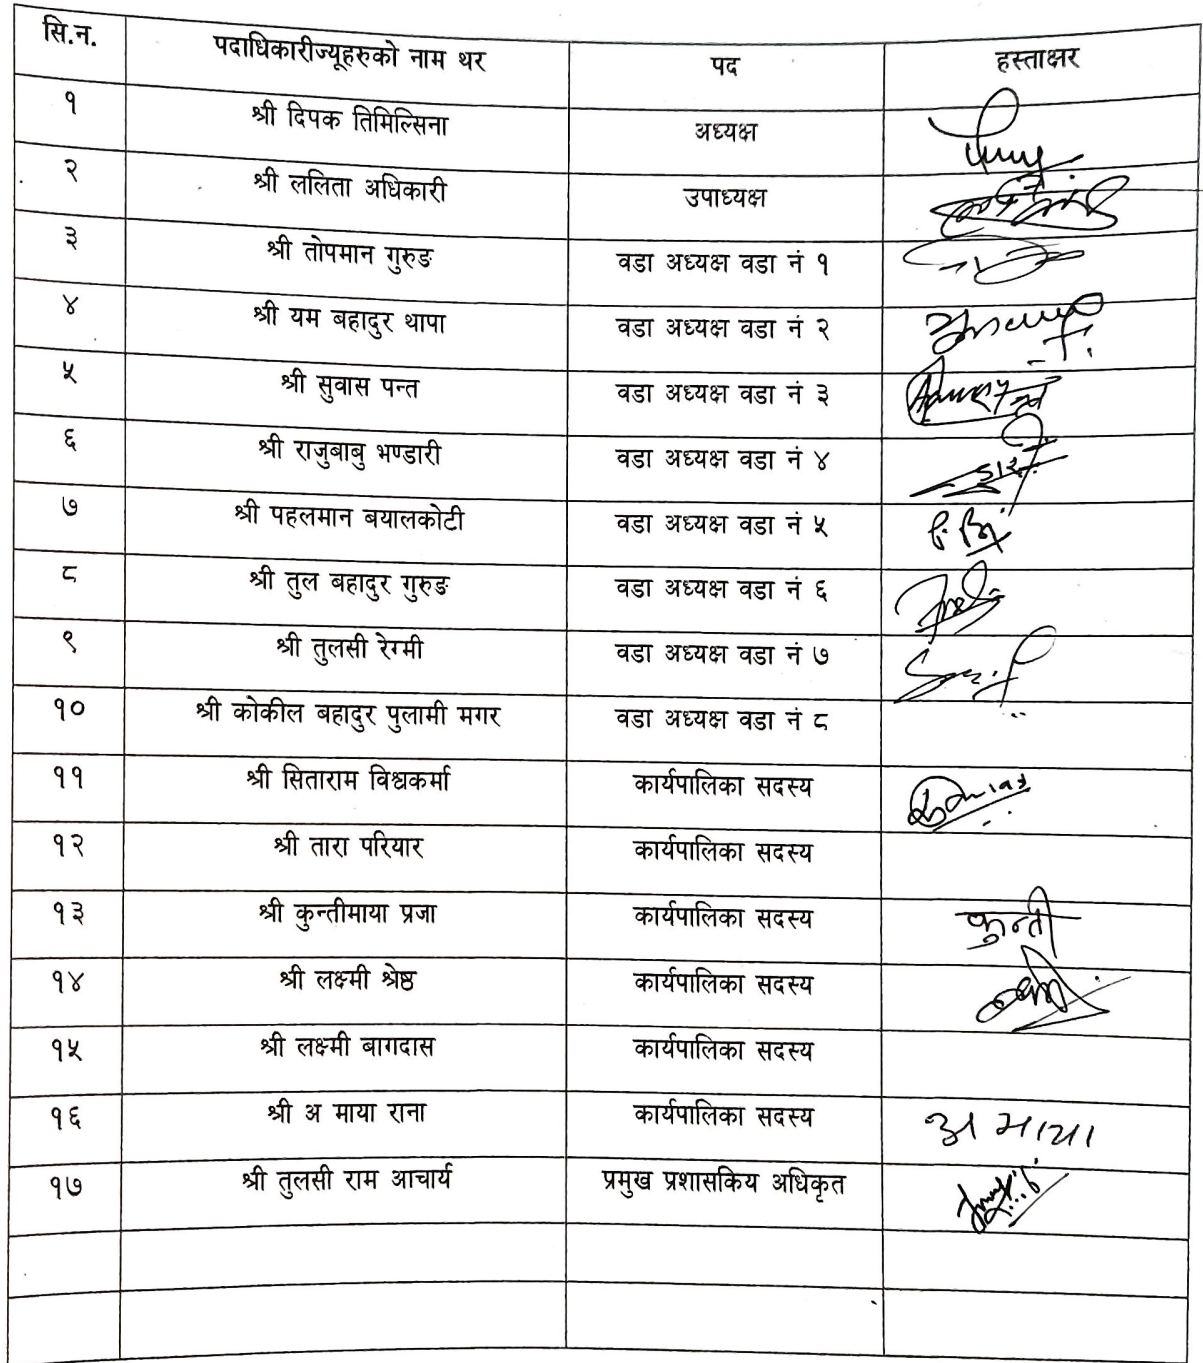 सि.न. पदाधिकारीज्यूहरुको नाम थर पद हस्ताक्षर
१ श्री दिपक तिमिल्सिना अध्यक्ष
२ श्री ललिता अधिकारी उपाध्यक्ष
३ श्री तोपमान गुरुङ वडा अध्यक्ष वडा नं १
४ श्री यम बहादुर थापा वडा अध्यक्ष वडा नं २
५ श्री सुवास पन्त वडा अध्यक्ष वडा नं ३
६ श्री राजुबाबु भण्डारी वडा अध्यक्ष वडा नं ४
७ श्री पहलमान बयालकोटी वडा अध्यक्ष वडा नं ५
८ श्री तुल बहादुर गुरुङ वडा अध्यक्ष वडा नं ६
९ श्री तुलसी रेग्मी वडा अध्यक्ष वडा नं ७
१० श्री कोकील बहादुर पुलामी मगर वडा अध्यक्ष वडा नं ८
११ श्री सिताराम विश्वकर्मा कार्यपालिका सदस्य
१२ श्री तारा परियार कार्यपालिका सदस्य
१३ श्री कुन्तीमाया प्रजा कार्यपालिका सदस्य कुन्ती
१४ श्री लक्ष्मी श्रेष्ठ कार्यपालिका सदस्य
१५ श्री लक्ष्मी बागदास कार्यपालिका सदस्य
१६ श्री अ माया राना कार्यपालिका सदस्य अ माया
१७ श्री तुलसी राम आचार्य प्रमुख प्रशासकिय अधिकृत